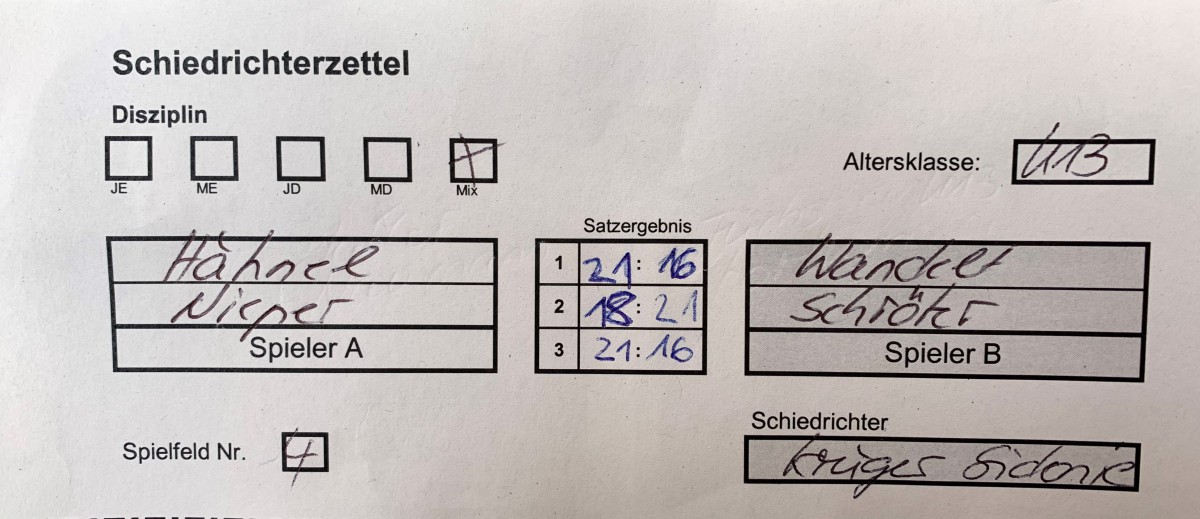 Schiedrichterzettel
Disziplin
JE ME JD MD Mix
Altersklasse: U13
Satzergebnis
Hähnel
Nieper
Spieler A
1 21:16
2 18:21
3 21:16
Wandelt
Schröter
Spieler B
Spielfeld Nr. 4
Schiedrichter
Krüger Sidonie